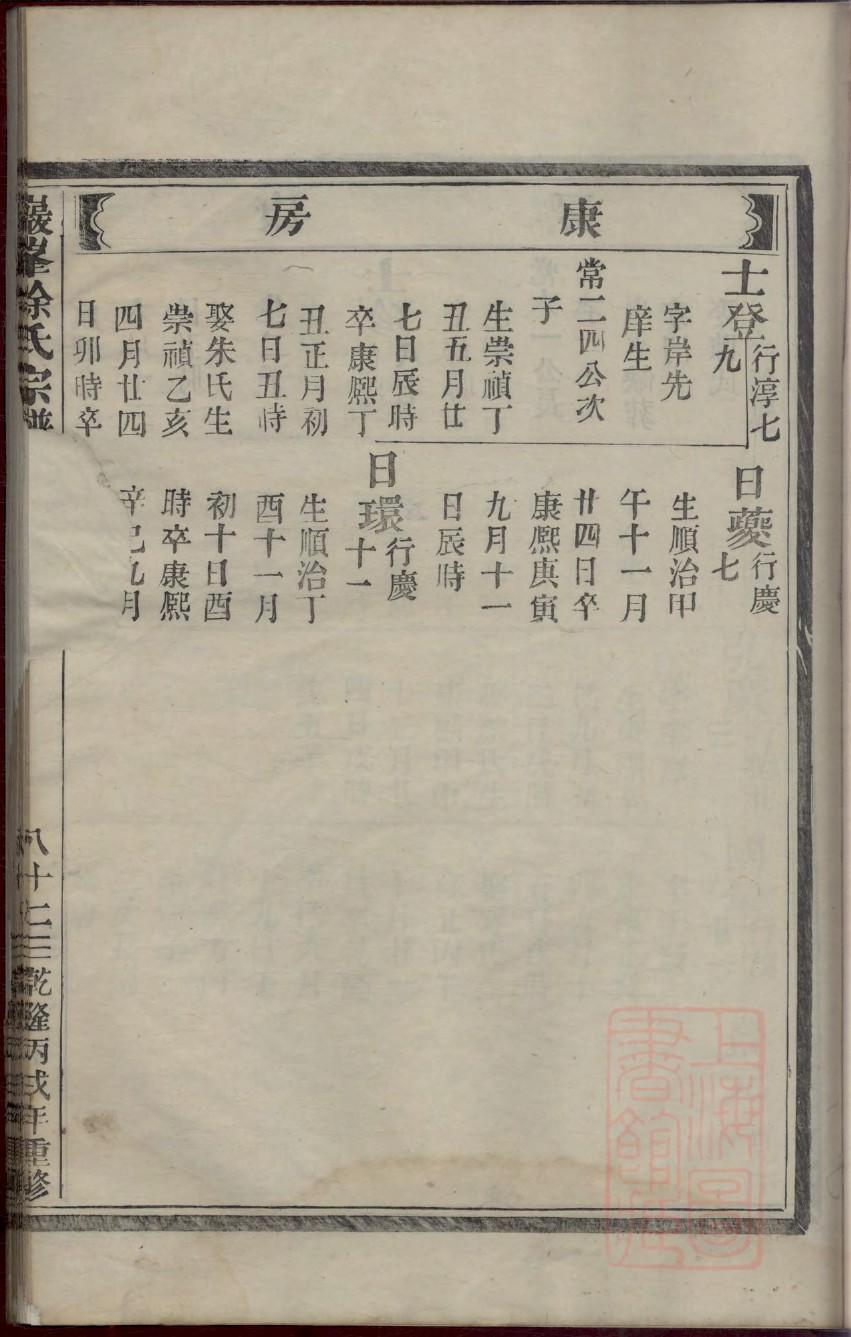 康房
士登行淳七九
字岸先
庠生
常二四公次
子
生崇禎丁
丑五月廿
七日辰時
卒康熙丁
丑正月初
七日丑時
娶朱氏生
崇禎乙亥
四月廿四
日卯時卒
日夔行慶七
生順治甲
午十一月
廿四日卒
康熙庚寅
九月十一
日辰時
日環行慶十一
生順治丁
酉十一月
初十日酉
時卒康熙
辛巳九月
巖峯徐氏宗譜
乾隆丙戌年重修
上海圖書館藏